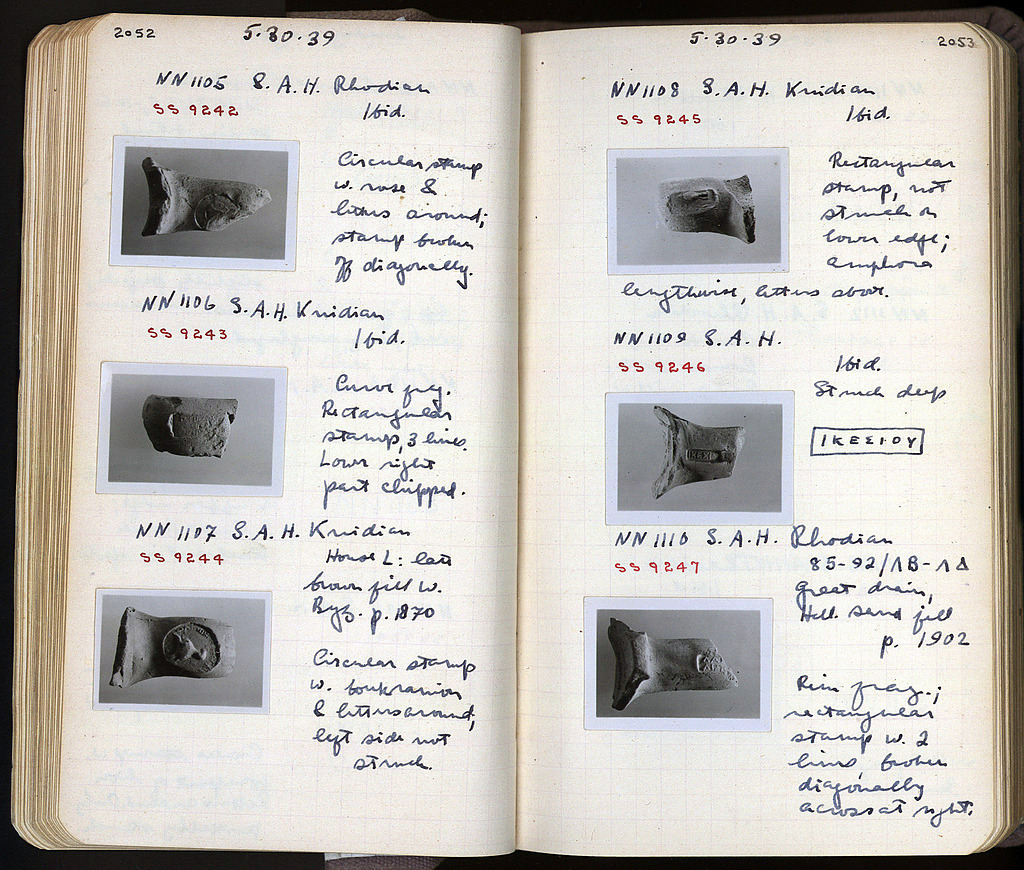 2052
5·30·39
NN1105 S. A. H. Rhodian
SS 9242
Ibid.
Circular stamp
w. rose &
letters around;
stamp broken
off diagonally.
NN1106 S. A. H. Knidian
SS 9243
Ibid.
Curve frg.
Rectangular
stamp, 3 lines.
Lower right
part chipped.
NN1107 S. A. H. Knidian
SS 9244
House L: late
brown fill w.
Byz. p. 1870
Circular stamp
w. boukranion
& letters around;
left side not
struck.
5·30·39
2053
NN1108 S. A. H. Knidian
SS 9245
Ibid.
Rectangular
stamp, not
struck on
lower edge;
amphora
lengthwise, letters above.
NN1109 S. A. H.
SS 9246
Ibid.
Struck deep
ΙΚΕΣΙΟΥ
NN1110 S. A. H. Rhodian
SS 9247
85-92/ΛΒ-ΛΔ
Great drain,
Hell. sand fill
p. 1902
Rim frag.;
rectangular
stamp w. 2
lines, broken
diagonally
across at right.